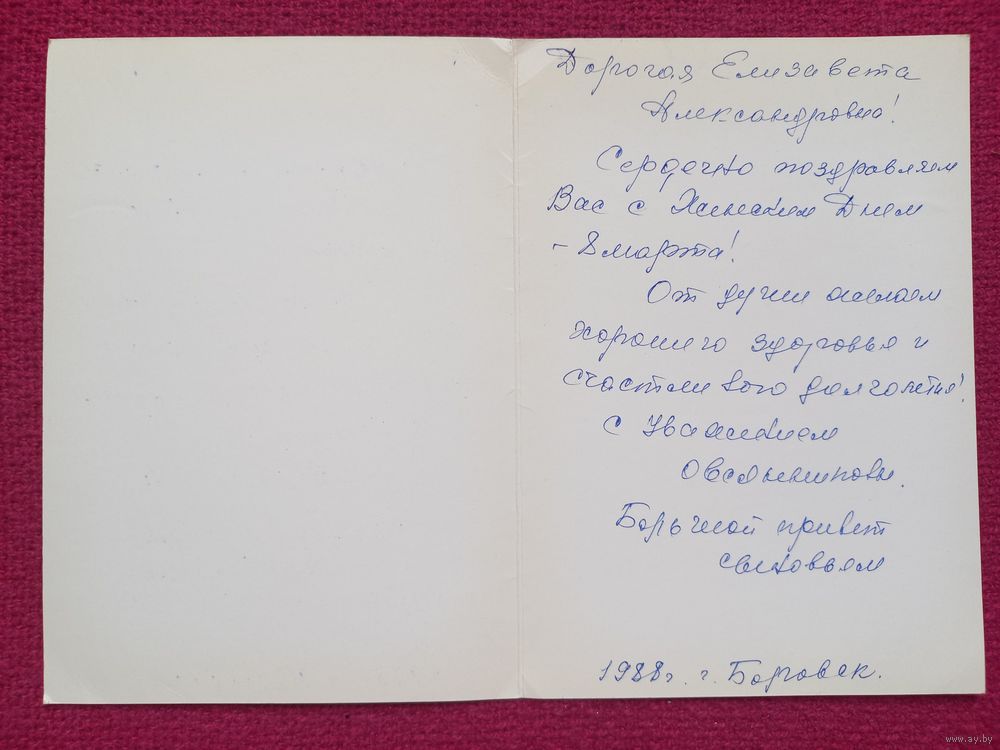 Дорогая Елизавета
Александровна!
Сердечно поздравляем
Вас с Женским Днем
- 8 марта!
От души желаем
хорошего здоровья и
счастливого долголетия!
С уважением
Овсянниковы.
Большой привет
сыновьям
1988 г. г. Боровск.
www.ay.by